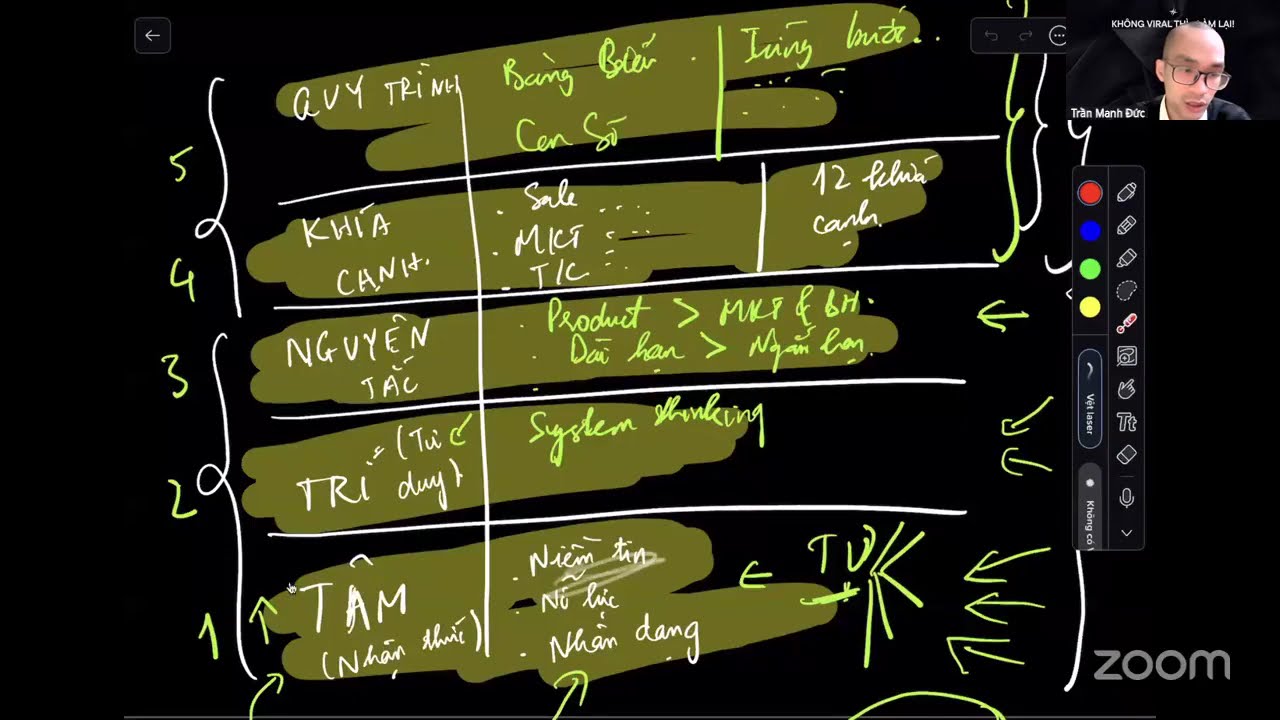 KHÔNG VIRAL
LÀM LẠI!
Trần Mạnh Đức
QUY TRÌNH
Bảng Biểu
Con Số
Từng bước...
5
KHÍA
CẠNH.
. Sale ....
. MKT
. T/C
12 khía
cạnh.
4
NGUYÊN
TẮC
. Product > MKT & BH.
. Dài hạn > Ngắn hạn.
3
TRÍ (Tư
duy)
System thinking
2
TÂM
(Nhận thức)
. Niềm tin
. Nỗ lực
. Nhân dạng
1
Vệt laser
Tt
zoom